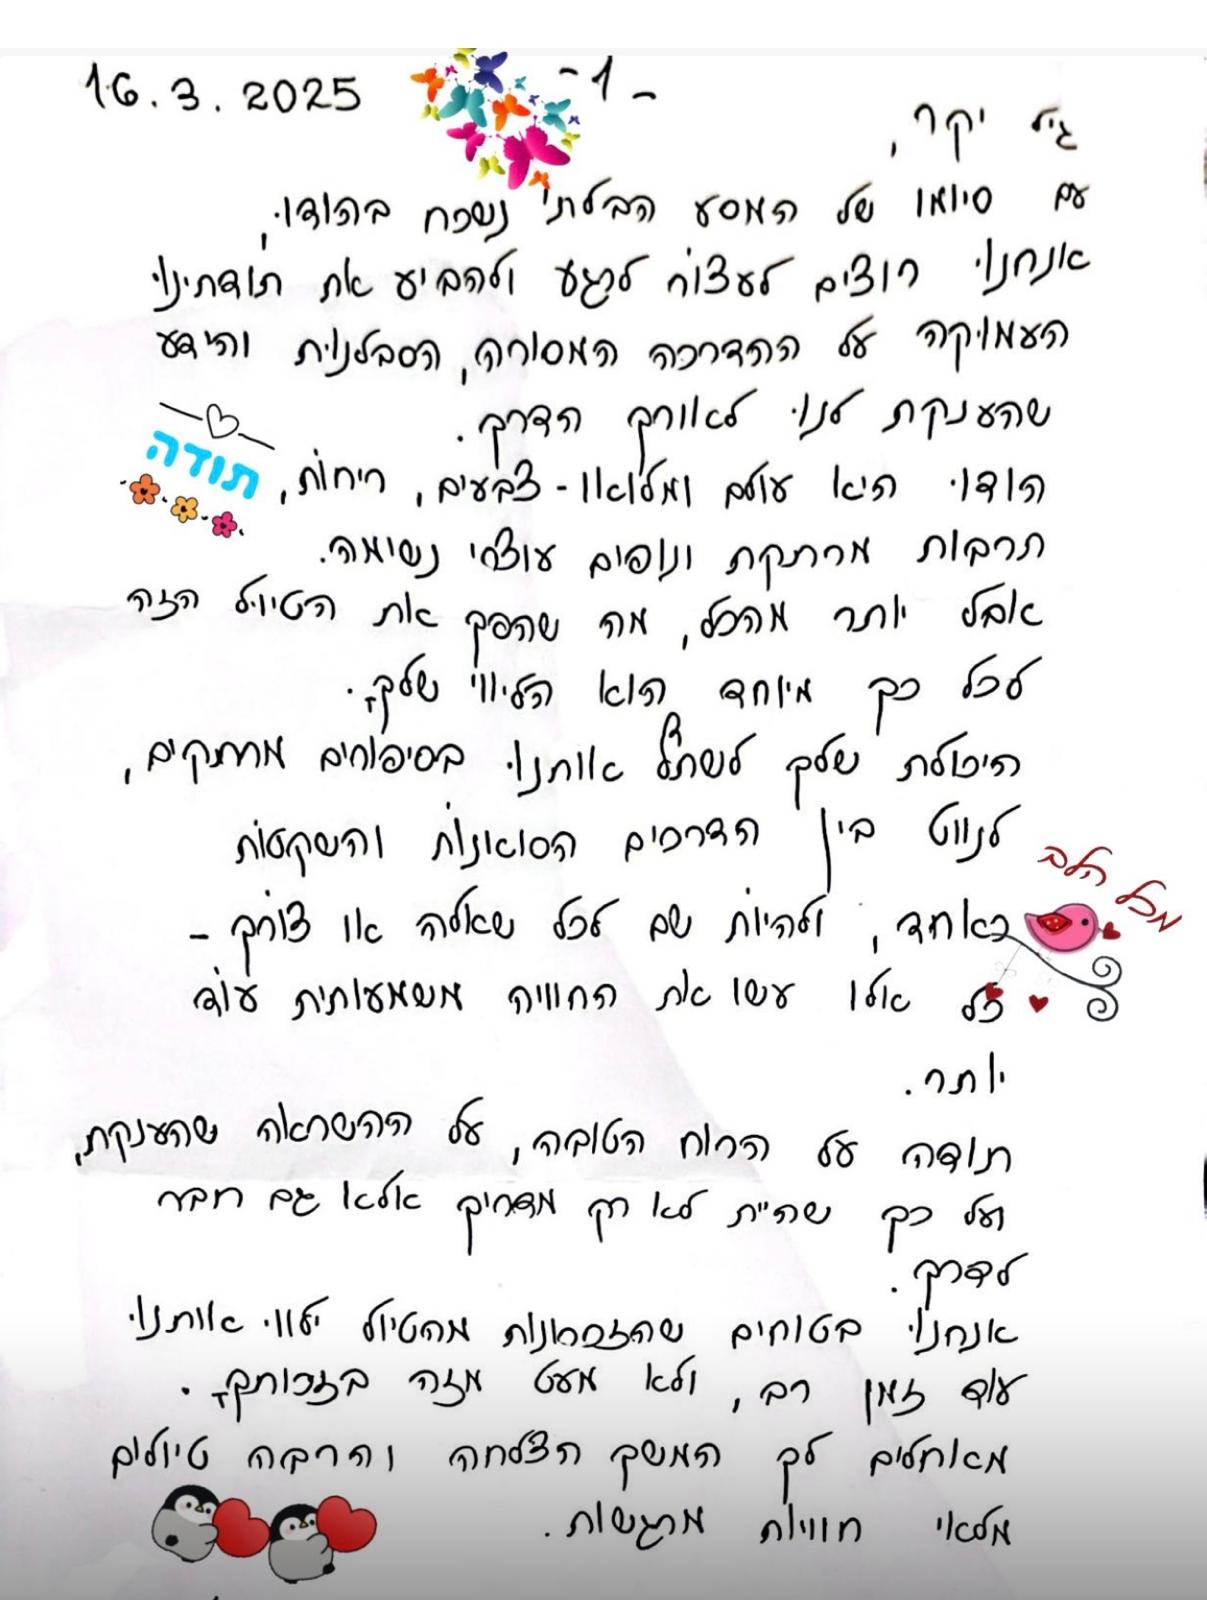 16.3.2025
-1-
גיל יקר,
עם סיומו של המסע הבלתי נשכח בהודו,
אנחנו רוצים לעצור לרגע ולהביע את תודתינו
העמוקה על ההדרכה המסורה, הסבלנות והידע
שהענקת לנו לאורך הדרך.
תודה
הודו היא עולם ומלואו - צבעים, ריחות,
תרבות מרתקת ונופים עוצרי נשימה.
אבל יותר מהכל, מה שהפך את הטיול הזה
לכל כך מיוחד הוא הליווי שלך.
היכולת שלך לשתף אותנו בסיפורים מרתקים,
לנווט בין הדרכים הסואנות והשקטות
מכל הלב
כאחד, ולהיות שם לכל שאלה או צורך -
כל אלו עשו את החוויה משמעותית עוד
יותר.
תודה על הרוח הטובה, על ההשראה שהענקת,
ועל כך שהיית לא רק מדריך אלא גם חבר
לדרך.
אנחנו בטוחים שהזכרונות מהטיול ילוו אותנו
עוד זמן רב, ולא מעט מזה בזכותך.
מאחלים לך המשך הצלחה והרבה טיולים
מלאי חוויות מרגשות.